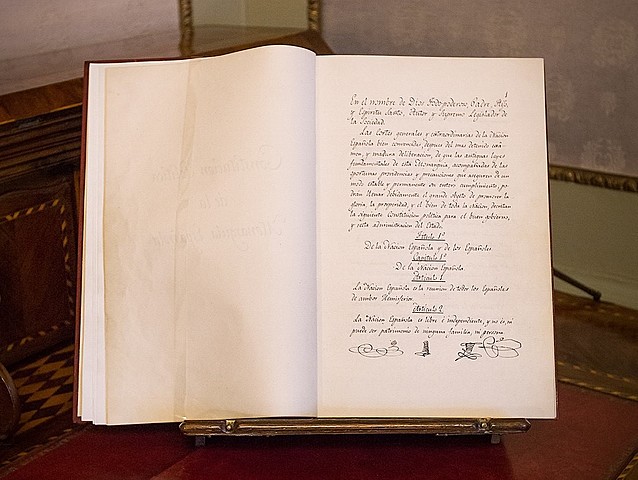 1
En el nombre de Dios Todopoderoso, Padre, Hijo,
y Espiritu Santo, Autor y Supremo Legislador de
la Sociedad.
Las Cortes generales y extraordinarias de la Nacion
Española bien convencidas, despues del mas detenido exâ-
men, y madura deliberacion, de que las antiguas leyes
fundamentales de esta Monarquia, acompañadas de las
oportunas providencias y precauciones que aseguren de un
modo estable y permanente su entero cumplimiento, po-
dran llenar debidamente el grande objeto de promover la
gloria, la prosperidad, y el bien de toda la Nacion, decretan
la siguiente Constitucion politica para el buen gobierno,
y recta administracion del Estado.
Titulo 1º
De la Nacion Española y de los Españoles.
Capitulo 1º
De la Nacion Española.
Articulo 1
La Nacion Española es la reunion de todos los Españoles
de ambos hemisferios.
Articulo 2
La Nacion Española es libre é independiente, y no es, ni
puede ser patrimonio de ninguna familia, ni persona